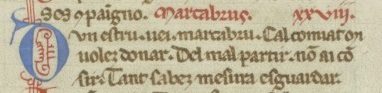 sos ꝯpaigno. Marcabrus. xxviii.
Ovn estru.uei.marcabru. Cal comiat on
uoler donar. Del mal partir. nō ai cō
sir. Tant saber mesura esguardar.